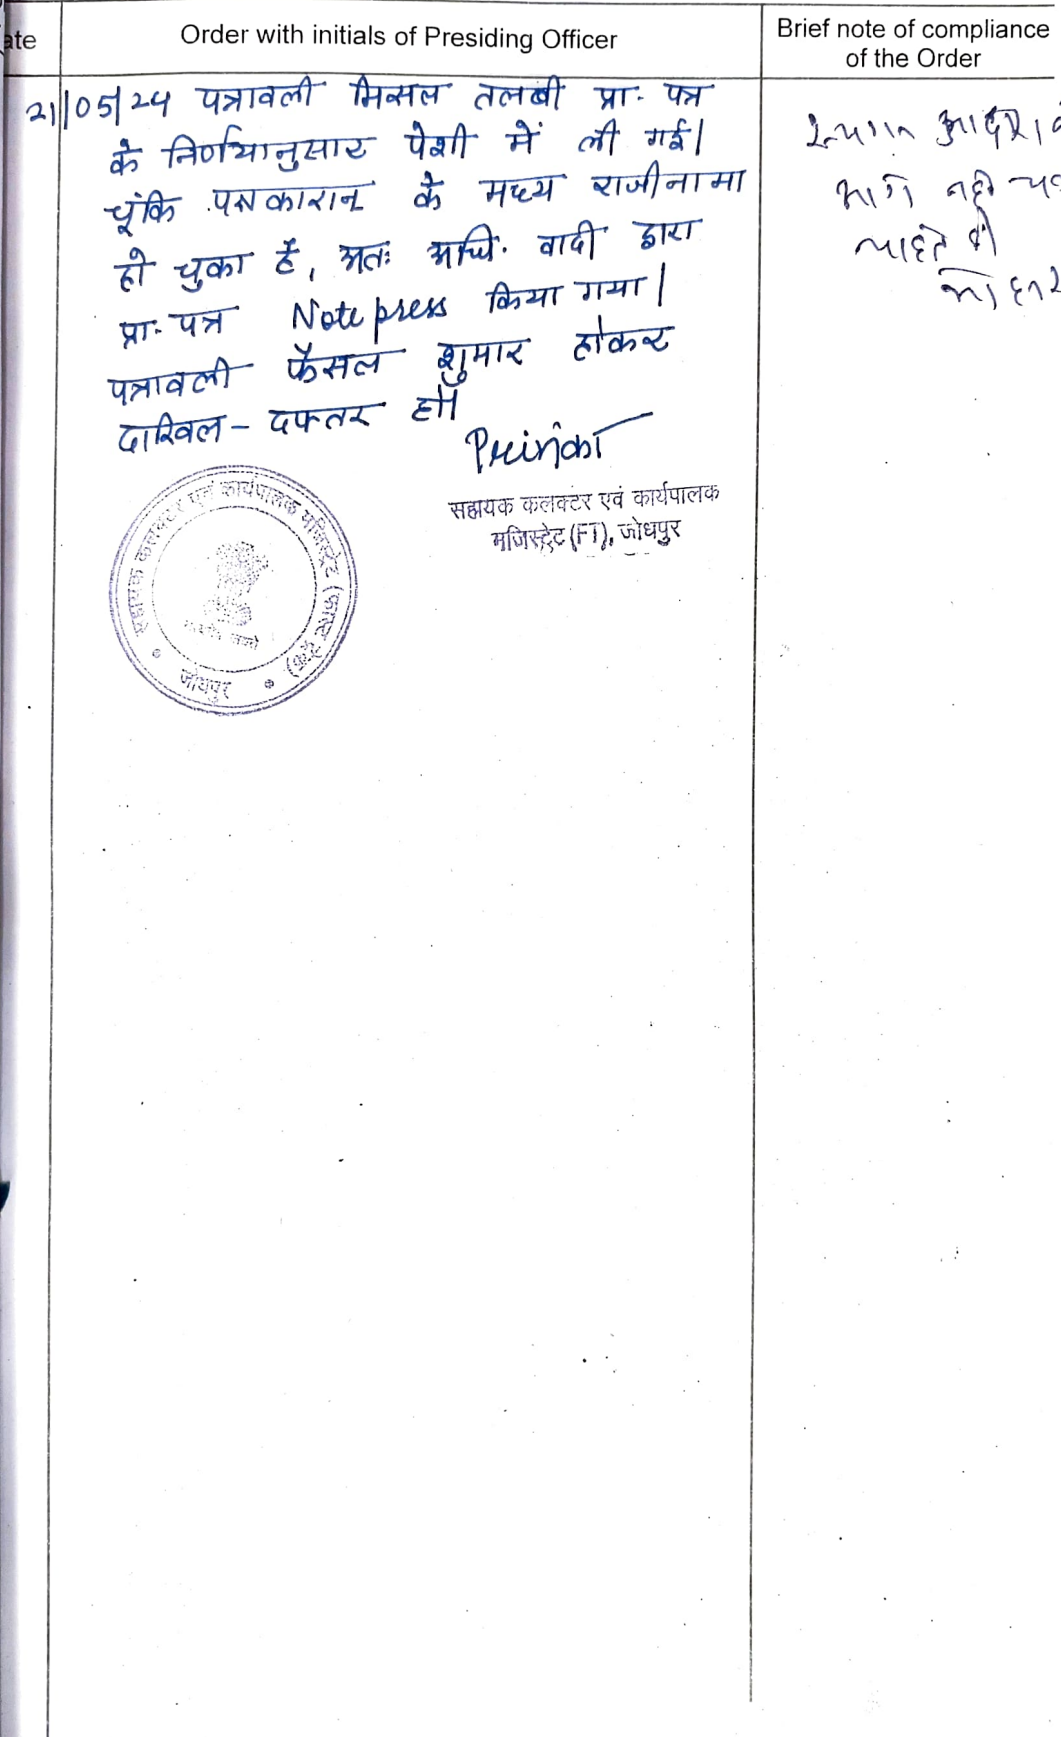 ate
Order with initials of Presiding Officer
Brief note of compliance
of the Order
21/05/24 पत्रावली मिसल तलबी प्रा. पत्र
के निर्णयानुसार पेशी में ली गई।
चूंकि पक्षकारान के मध्य राजीनामा
हो चुका है, अतः अधि. वादी द्वारा
प्रा. पत्र Note press किया गया।
पत्रावली फैसल शुमार होकर
दाखिल - दफ्तर हो।
Prinka
सहायक कलक्टर एवं कार्यपालक
मजिस्ट्रेट (FT), जोधपुर
सहायक कलक्टर एवं कार्यपालक मजिस्ट्रेट (फास्ट ट्रेक)
जोधपुर
स्थगन आदेश
आगे नहीं
चाहते